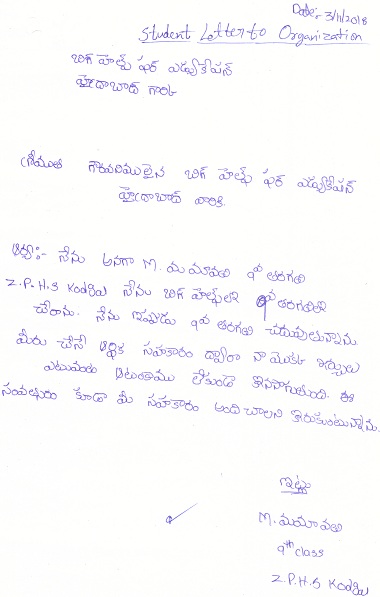 Date:- 3/11/2018
Student Letter to Organization
బిగ్ హెల్ప్ ఫర్ ఎడ్యుకేషన్
హైదరాబాద్ గారికి
శ్రీమతి గౌరవనీయులైన బిగ్ హెల్ప్ ఫర్ ఎడ్యుకేషన్
హైదరాబాద్ వారికి.
ఆర్యా:- నేను అనగా M. 9వ తరగతి
Z.P.H.S Kodgil నేను బిగ్ హెల్ప్ లో 9వ తరగతిలో
చేరాను. నేను ఇప్పుడు 9వ తరగతి చదువుతున్నాను.
మీరు చేసే ఆర్థిక సహకారం ద్వారా నా యొక్క
ఎటువంటి లేకుండా కొనసాగుతుంది. ఈ
సంవత్సరం కూడా మీ సహకారం అందించాలని కోరుకుంటున్నాను.
ఇట్లు
M.
9th class
Z.P.H.S Kodgil